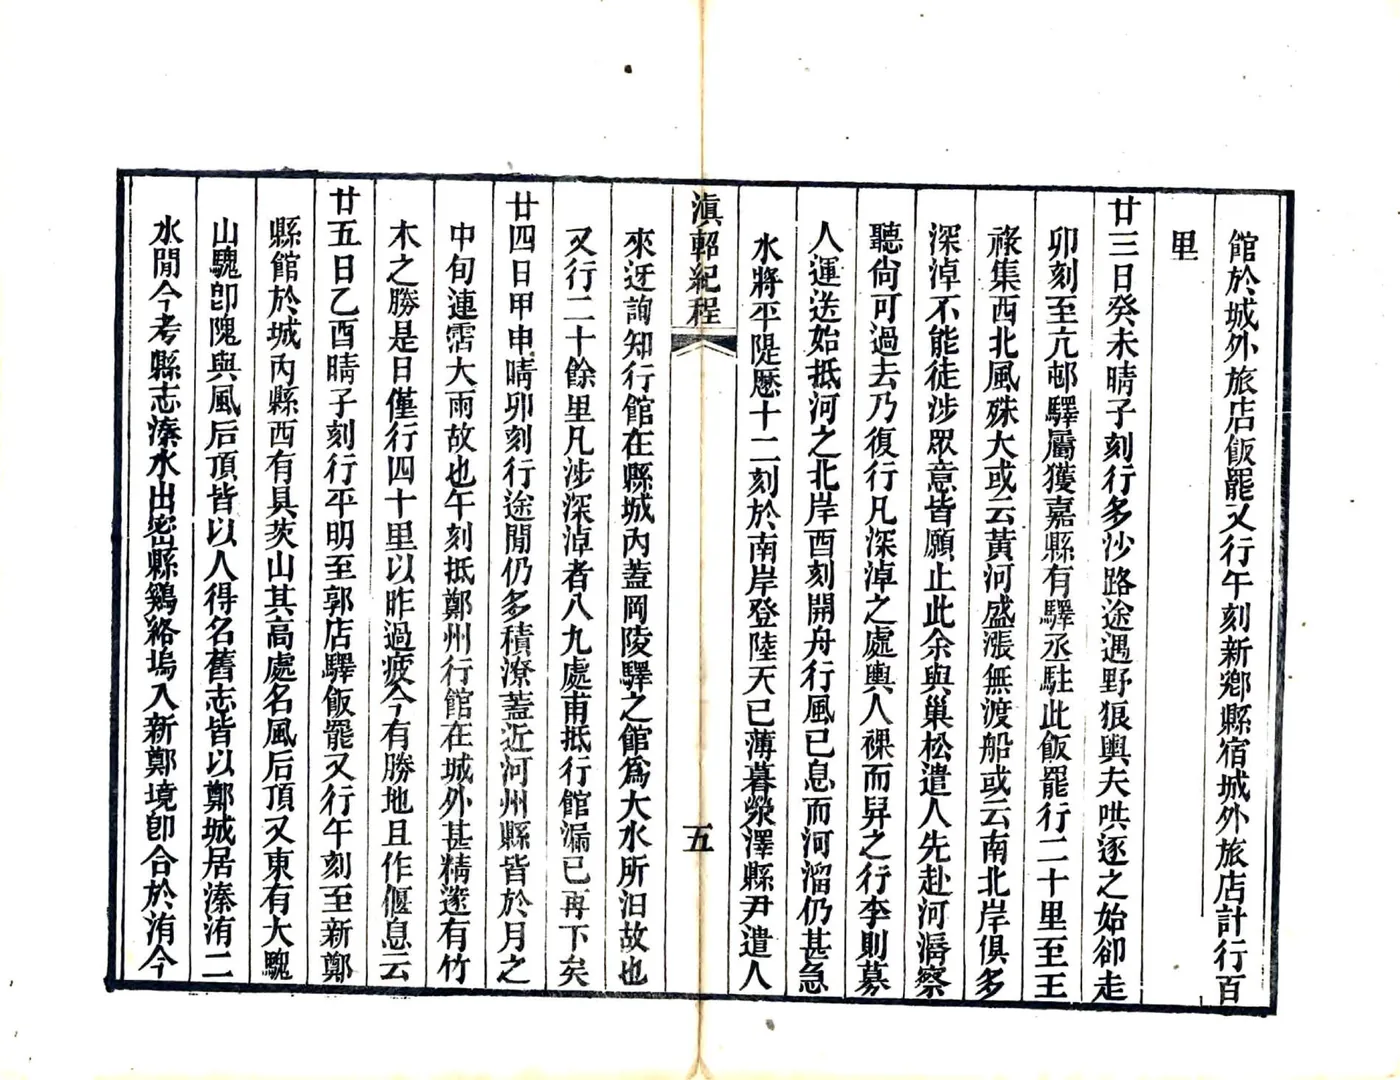 館於城外旅店飯罷又行午刻新鄕縣宿城外旅店計行百
里
廿三日癸未晴子刻行多沙路途遇野狼輿夫哄逐之始卻走
卯刻至亢邨驛屬獲嘉縣有驛丞駐此飯罷行二十里至王
祿集西北風殊大或云黃河盛漲無渡船或云南北岸俱多
深淖不能徒涉眾意皆願止此余與巢松遣人先赴河漘察
聽尙可過去乃復行凡深淖之處輿人裸而舁之行李則募
人運送始抵河之北岸酉刻開舟行風已息而河溜仍甚急
水將平隄歷十二刻於南岸登陸天已薄暮滎澤縣尹遣人
滇軺紀程
五
來迓詢知行館在縣城內蓋岡陵驛之館爲大水所汩故也
又行二十餘里凡涉深淖者八九處甫抵行館漏已再下矣
廿四日甲申晴卯刻行途閒仍多積潦蓋近河州縣皆於月之
中旬連霑大雨故也午刻抵鄭州行館在城外甚精邃有竹
木之勝是日僅行四十里以昨過疲今有勝地且作偃息云
廿五日乙酉晴子刻行平明至郭店驛飯罷又行午刻至新鄭
縣館於城內縣西有具茨山其高處名風后頂又東有大騩
山騩卽隗與風后頂皆以人得名舊志皆以鄭城居溱洧二
水閒今考縣志溱水出密縣鷄絡塢入新鄭境卽合於洧今